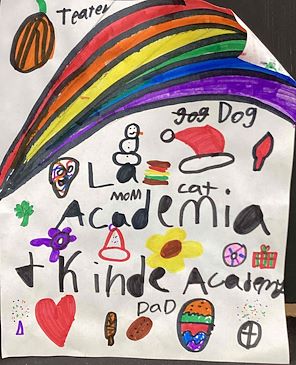 Teater
gog Dog
La
mom cat
Academia
Kinde Academ
DaD